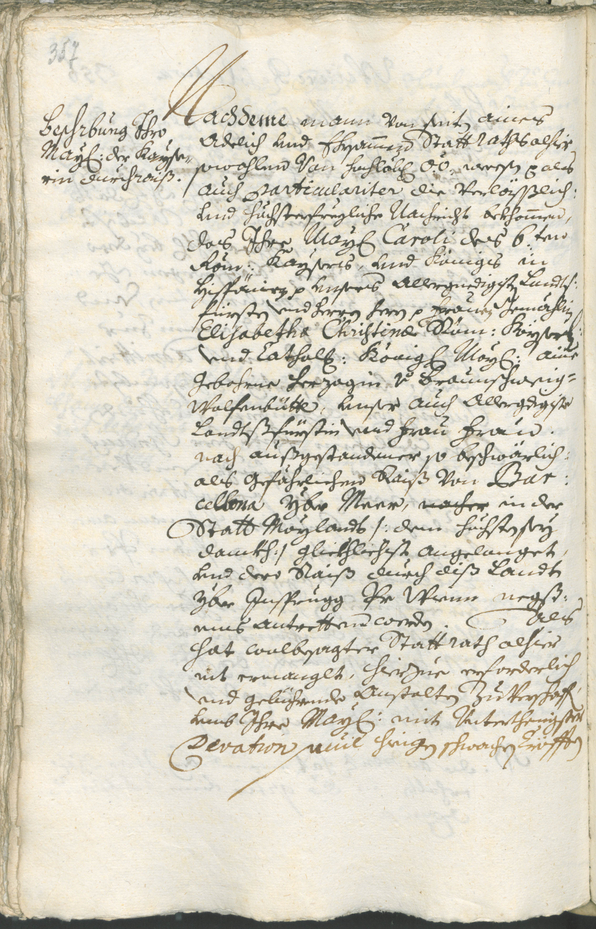 357
Beschrbung Ihro
Mayl: der Kayse=
rin durchraiß.
Nachdeme mann von seith aines
Adelich und Ehrsammen Statt Raths alhier
sowohlen von hochlobl: OÖ. wesen p als
auch particulariter die verläßlich:
und höchsterfreyliche Nachricht bekhommen,
das Ihro Mayl Caroli des 6.ten
Röm: Kaysers, und Königs in
Hispänien p unsers Allergnedigisten Landts=
fürsten und Herrn Herrn p Frauen Gemahlin
Elisabetha Christina Röm: Kayserl:
und Catholl: Königl: Mayl: aine
gebohrne Herzogin v Braunschweig=
Wolfenbüttl, unser auch Allergdigiste
Landtsfürstin und Frau Frau.
nach außgestandener so beschwärlich:
als gefährlichen Raiß von Bar=
cellona yber Meer, nacher in der
Statt Maylandt /: dem höchsten sey
danckh :/ glickhlichist angelanget,
und dero Raiß durch diß Landt
yber Insprugg Pr Wienn negst=
ens antretten werde. Als
hat wolbesagter Statt Rath alhier
nit ermanglt, hierzue erforderlich
und gebührende Anstalten zu verschaffen,
umb Ihro Mayl: mit unterthenigister
Devation, und ihrigen schwachen Kräfften